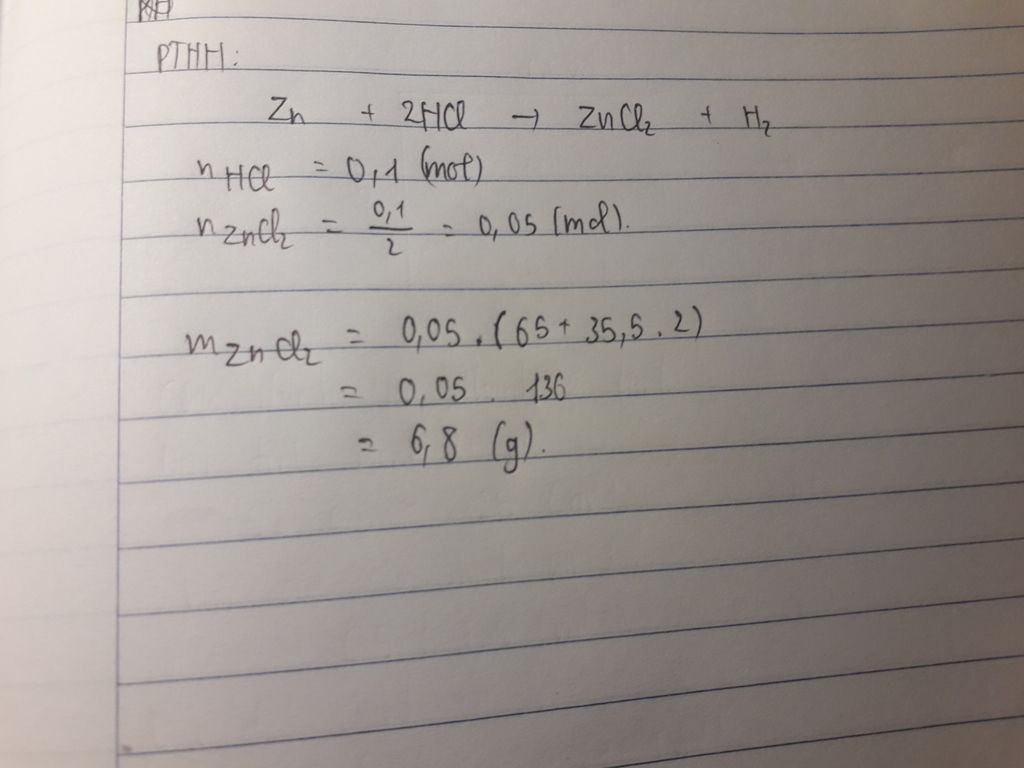 PTHH:
Zn + 2HCl → ZnCl₂ + H₂
n HCl = 0,1 (mol)
n ZnCl₂ = 0,1/2 = 0,05 (mol).
m ZnCl₂ = 0,05 . (65 + 35,5 . 2)
= 0,05 . 136
= 6,8 (g).